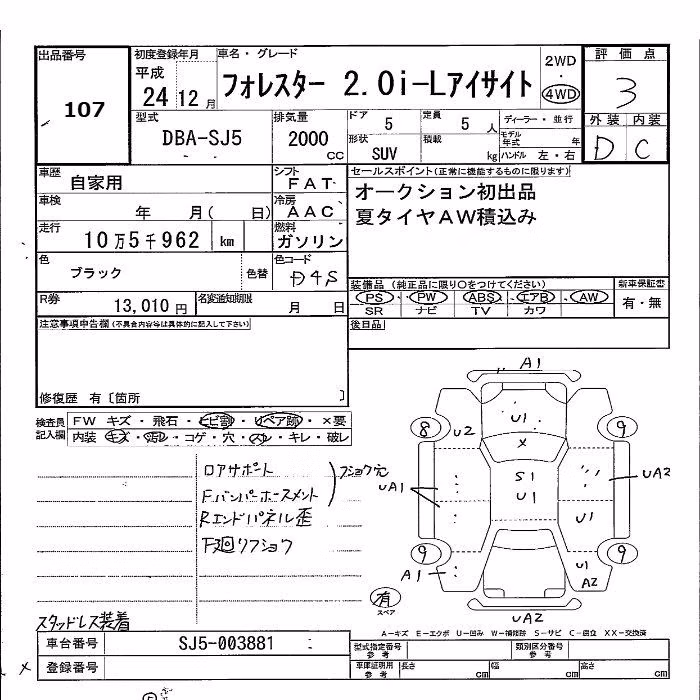 出品番号
107
初度登録年月
平成
24 12月
車名・グレード
フォレスター 2.0i-Lアイサイト
2WD
・
4WD
評価点
3
外装 内装
D C
型式
DBA-SJ5
排気量
2000
CC
ドア
5
定員
5 人
形状
SUV
積載
kg
ディーラー・並行
モデル年式 年
ハンドル 左・右
車歴
自家用
シフト
FAT
車検
年 月( 日)
冷房
AAC
走行
10万5千962 km
燃料
ガソリン
色
ブラック
色替
色コード
D4S
R券
13,010円
名変通知期限
月 日
セールスポイント(正常に機能するものに限ります)
オークション初出品
夏タイヤAW積込み
装備品 (純正品に限り○をつけてください)
PS・PW・ABS・エアB・AW
SR ナビ TV カワ
新車保証書
有・無
後日品
注意事項申告欄(不具合内容等は具体的に記入して下さい)
修復歴 有〔箇所 〕
検査員記入欄
FW キズ・飛石・ヒビ割・リペア跡・×要
内装 キズ・汚レ・コゲ・穴・スレ・キレ・破レ
ロアサポート
F.バンパーホースメント
フショク穴
Rエンドパネル歪
下廻りフショウ
スタッドレス装着
A1
U2
U1
×
8
9
S1
U1
UA1
UA2
U1
9
9
A1
U1
A2
UA2
有
スペア
A-キズ E-エクボ U-凹み W-補修跡 S-サビ C-腐立 XX-交換済
車台番号
SJ5-003881
登録番号
型式指定番号
参考
類別区分番号
参考
車庫証明用
参考
長さ cm
幅 cm
高さ cm